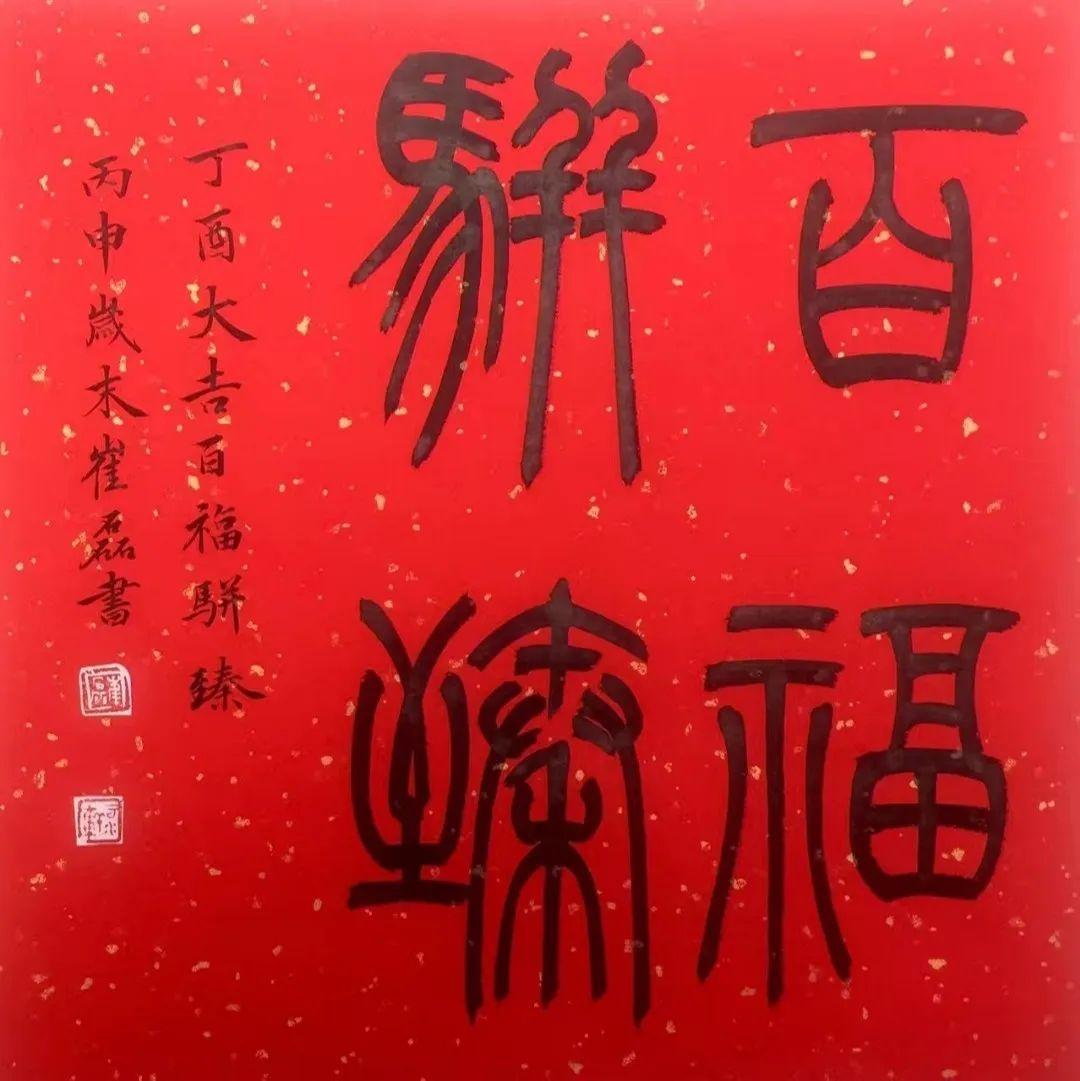 百福
駢臻
丁酉大吉百福駢臻
丙申歲末崔磊書